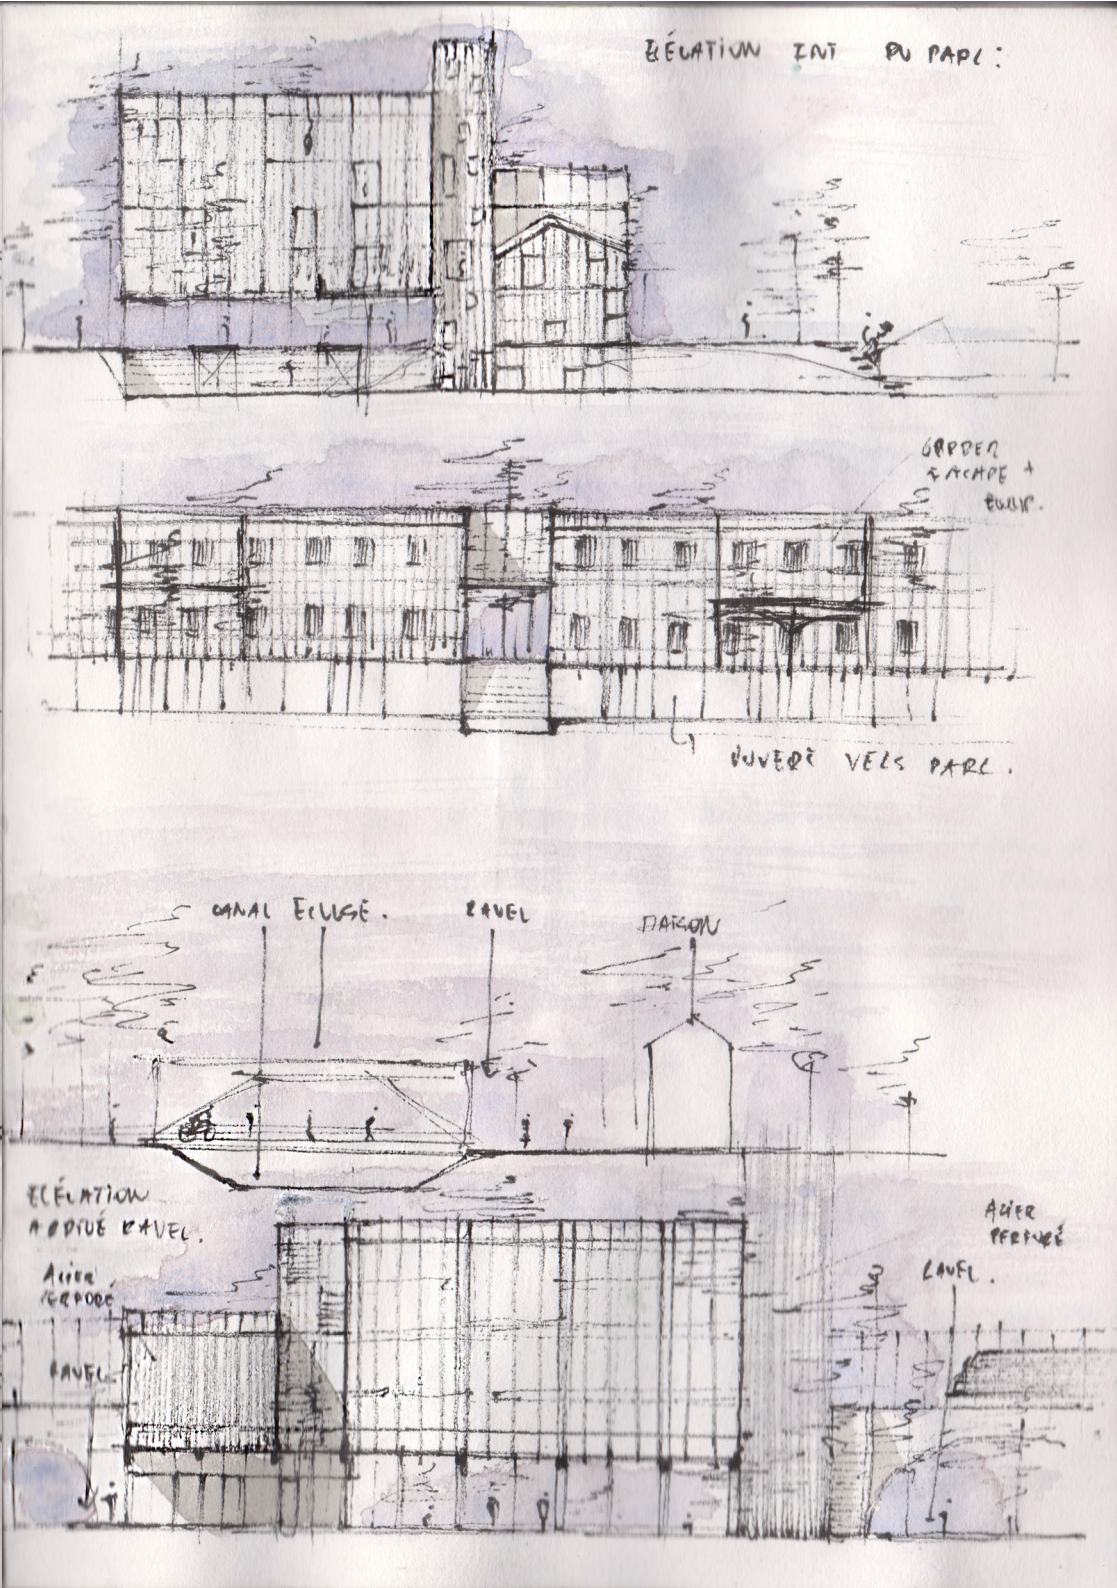 ELÉVATION INT DU PARC :
GARDER
FACADE +
OUVERT VERS PARC .
CANAL ECLUSE .
RAVEL
MAISON
ELÉVATION
RAVEL .
ACIER
PERFORÉ
RAVEL .
ACIER
PERFORÉ
RAVEL .